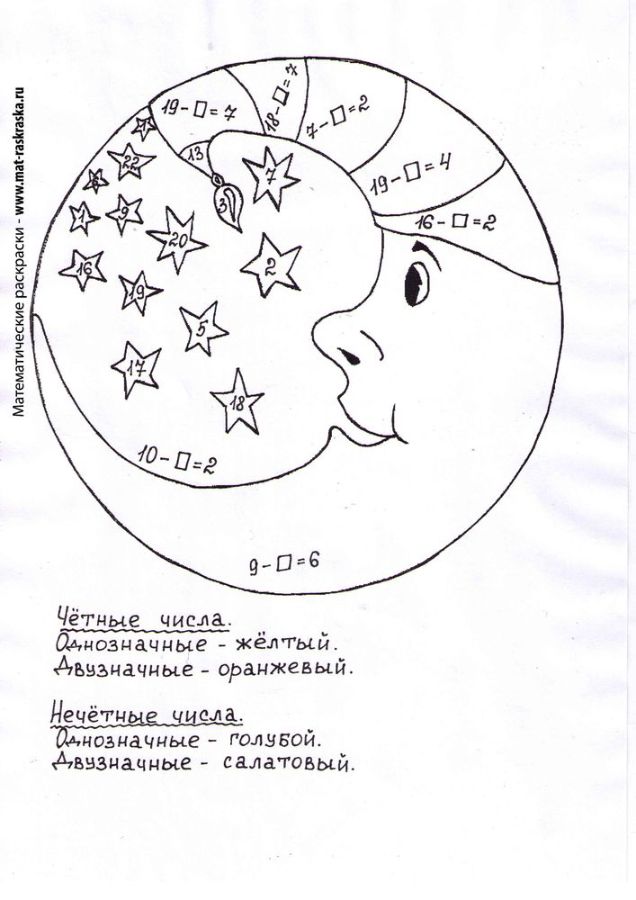 Математические раскраски - www.mat-raskraska.ru
19-□=7
18-□=7
7-□=2
19-□=4
16-□=2
13
3
22
7
1
9
20
2
16
19
5
17
18
10-□=2
9-□=6
Чётные числа.
Однозначные - жёлтый.
Двузначные - оранжевый.
Нечётные числа.
Однозначные - голубой.
Двузначные - салатовый.